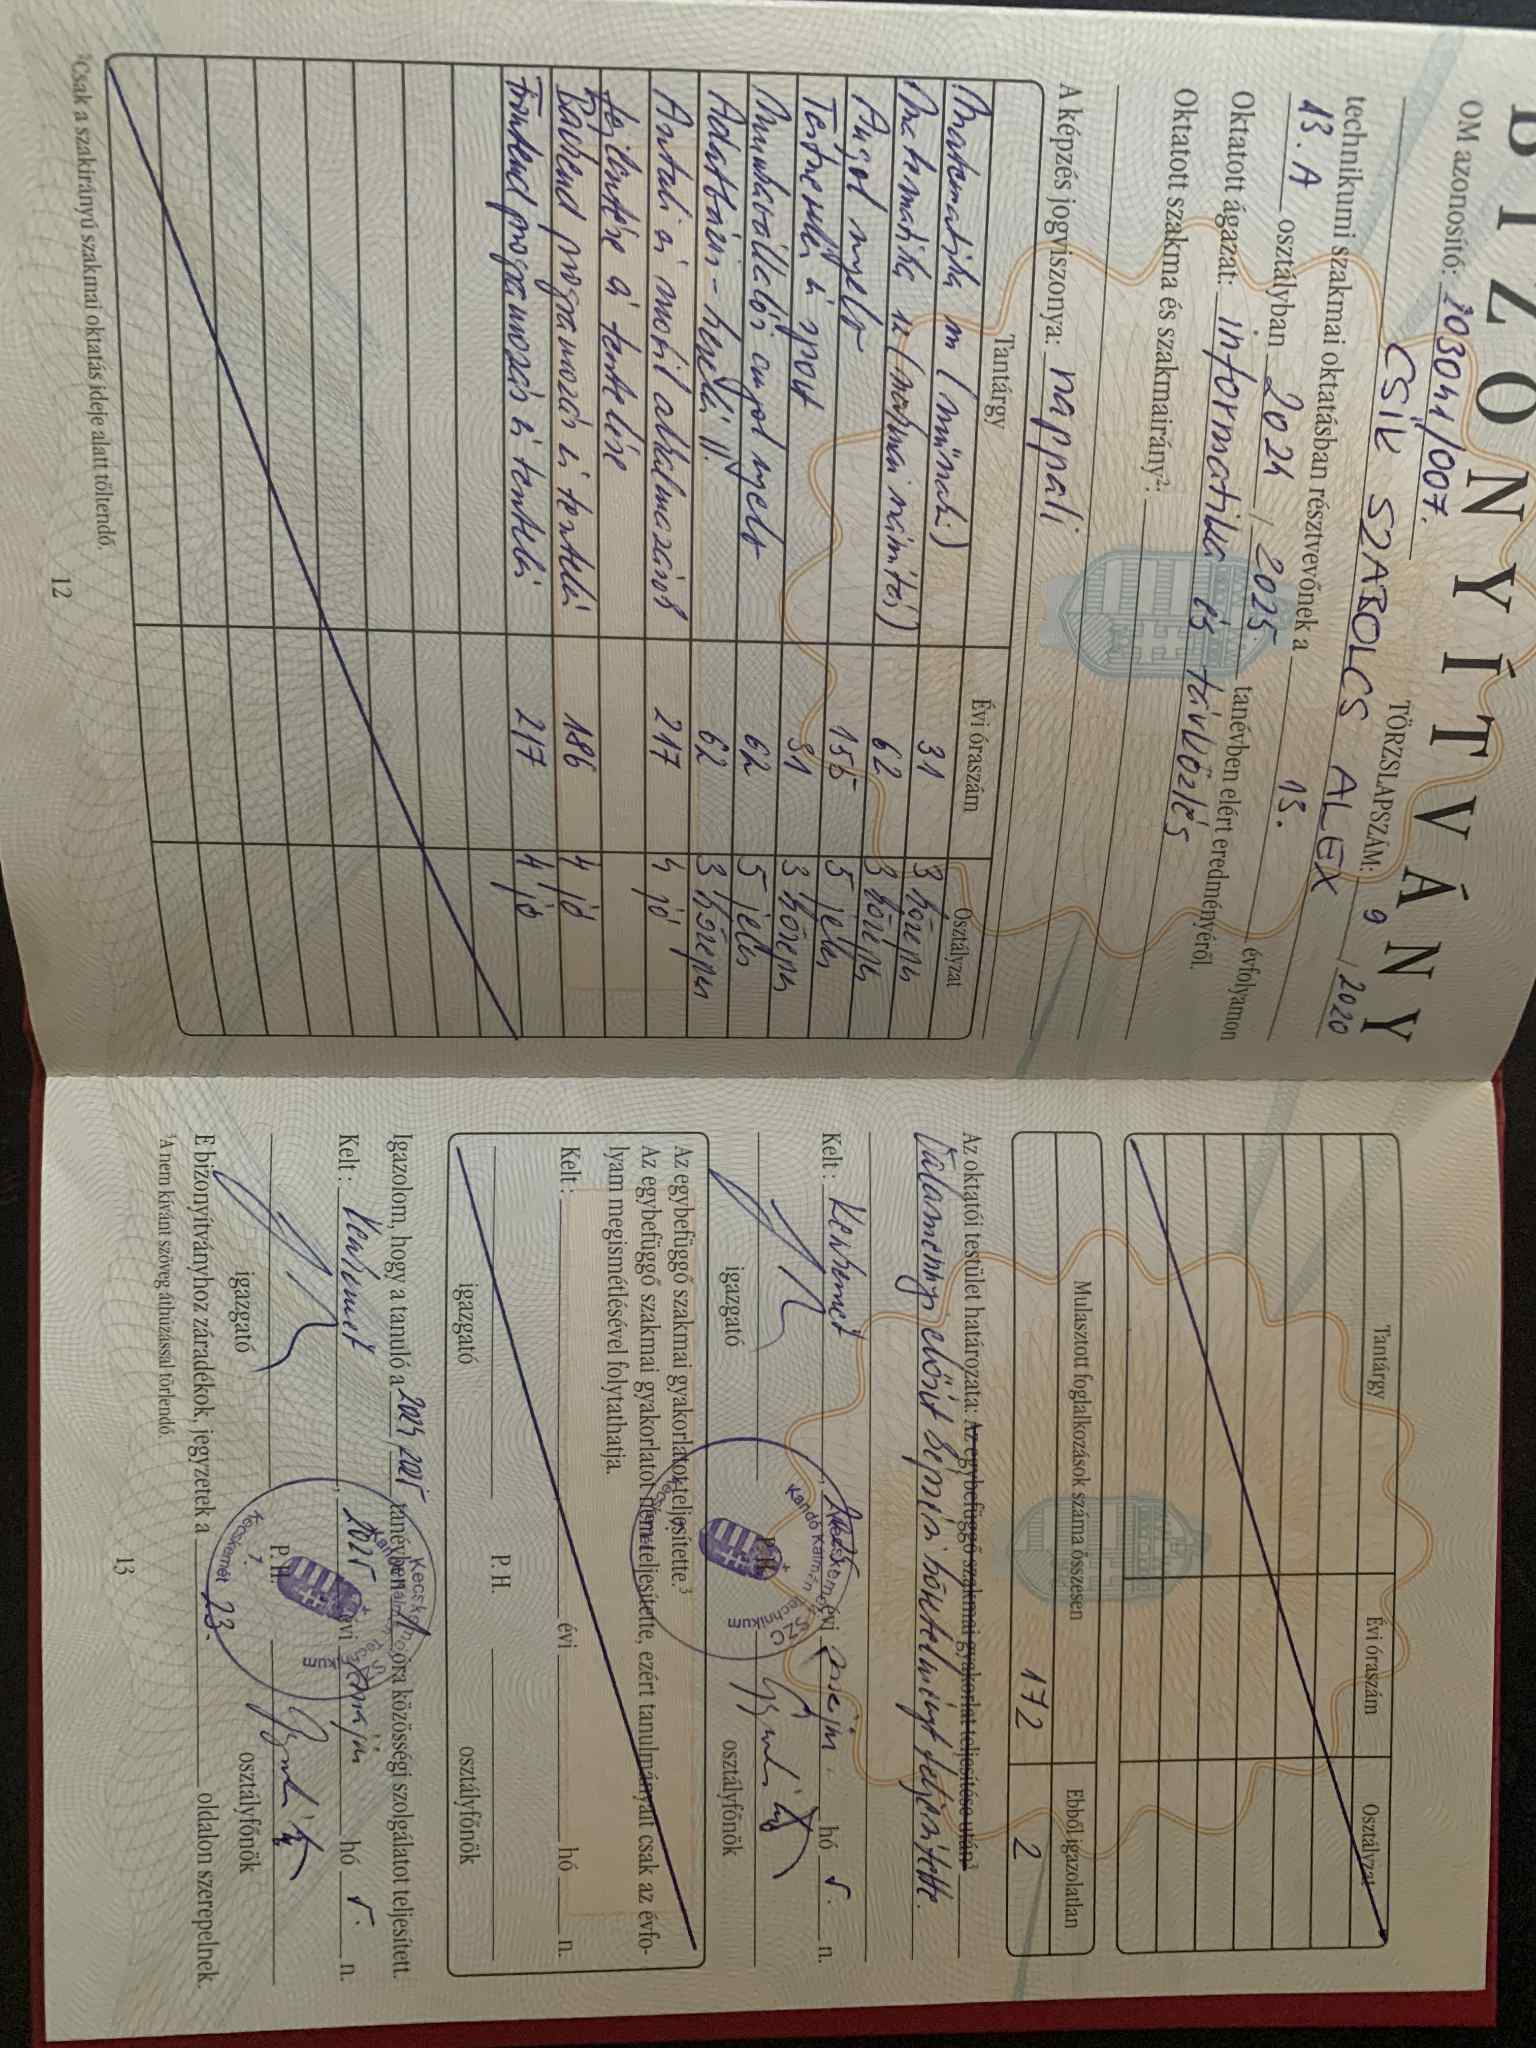 BIZONYÍTVÁNY
OM azonosító: 203041/007. TÖRZSLAPSZÁM: 9 / 2020
CSÍK SZABOLCS ALEX
technikumi szakmai oktatásban résztvevőnek a 13. évfolyamon
13. A osztályban 2024 / 2025 tanévben elért eredményéről.
Oktatott ágazat: informatika és távközlés
Oktatott szakma és szakmairány²:
A képzés jogviszonya: nappali
Tantárgy Évi óraszám Osztályzat
Matematika m (műszaki) 31 3 közepes
Matematika sz (szakmai számítás) 62 3 közepes
Angol nyelv 155 5 jeles
Testnevelés és sport 31 3 közepes
Munkavállalói angol nyelv 62 5 jeles
Adatbázis-kezelés II. 62 3 közepes
Asztali és mobil alkalmazások 217 4 jó
fejlesztése és tesztelése
Backend programozás és tesztelés 186 4 jó
Frontend programozás és tesztelés 217 4 jó
²Csak a szakirányú szakmai oktatás ideje alatt töltendő.
12
Tantárgy Évi óraszám Osztályzat
Mulasztott foglalkozások száma összesen Ebből igazolatlan
172 2
Az oktatói testület határozata: Az egybefüggő szakmai gyakorlat teljesítése után³
Valamennyi előírt képzési követelményt teljesítette.
Kelt: Kecskemét, 2025 évi május hó 5. n.
igazgató P. H. osztályfőnök
Kecskeméti SZC Kandó Kálmán Technikum
Az egybefüggő szakmai gyakorlatot teljesítette.³
Az egybefüggő szakmai gyakorlatot nem teljesítette, ezért tanulmányait csak az évfo-
lyam megismétlésével folytathatja.
Kelt: évi hó n.
igazgató P. H. osztályfőnök
Igazolom, hogy a tanuló a 2024 2025 tanévben óra közösségi szolgálatot teljesített.
Kelt: Kecskemét, 2025 évi május hó 5. n.
igazgató P. H. osztályfőnök
E bizonyítványhoz záradékok, jegyzetek a 23. oldalon szerepelnek.
³A nem kívánt szöveg áthúzással törlendő.
13